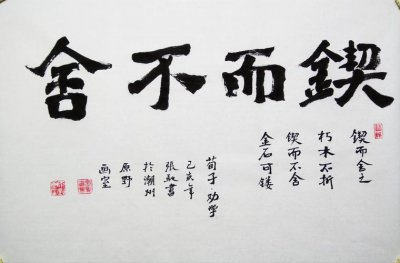 鍥而不舍
锲而舍之
朽木不折
锲而不舍
金石可镂
荀子·劝学
己亥年
張
書
於潮州
原野
画室